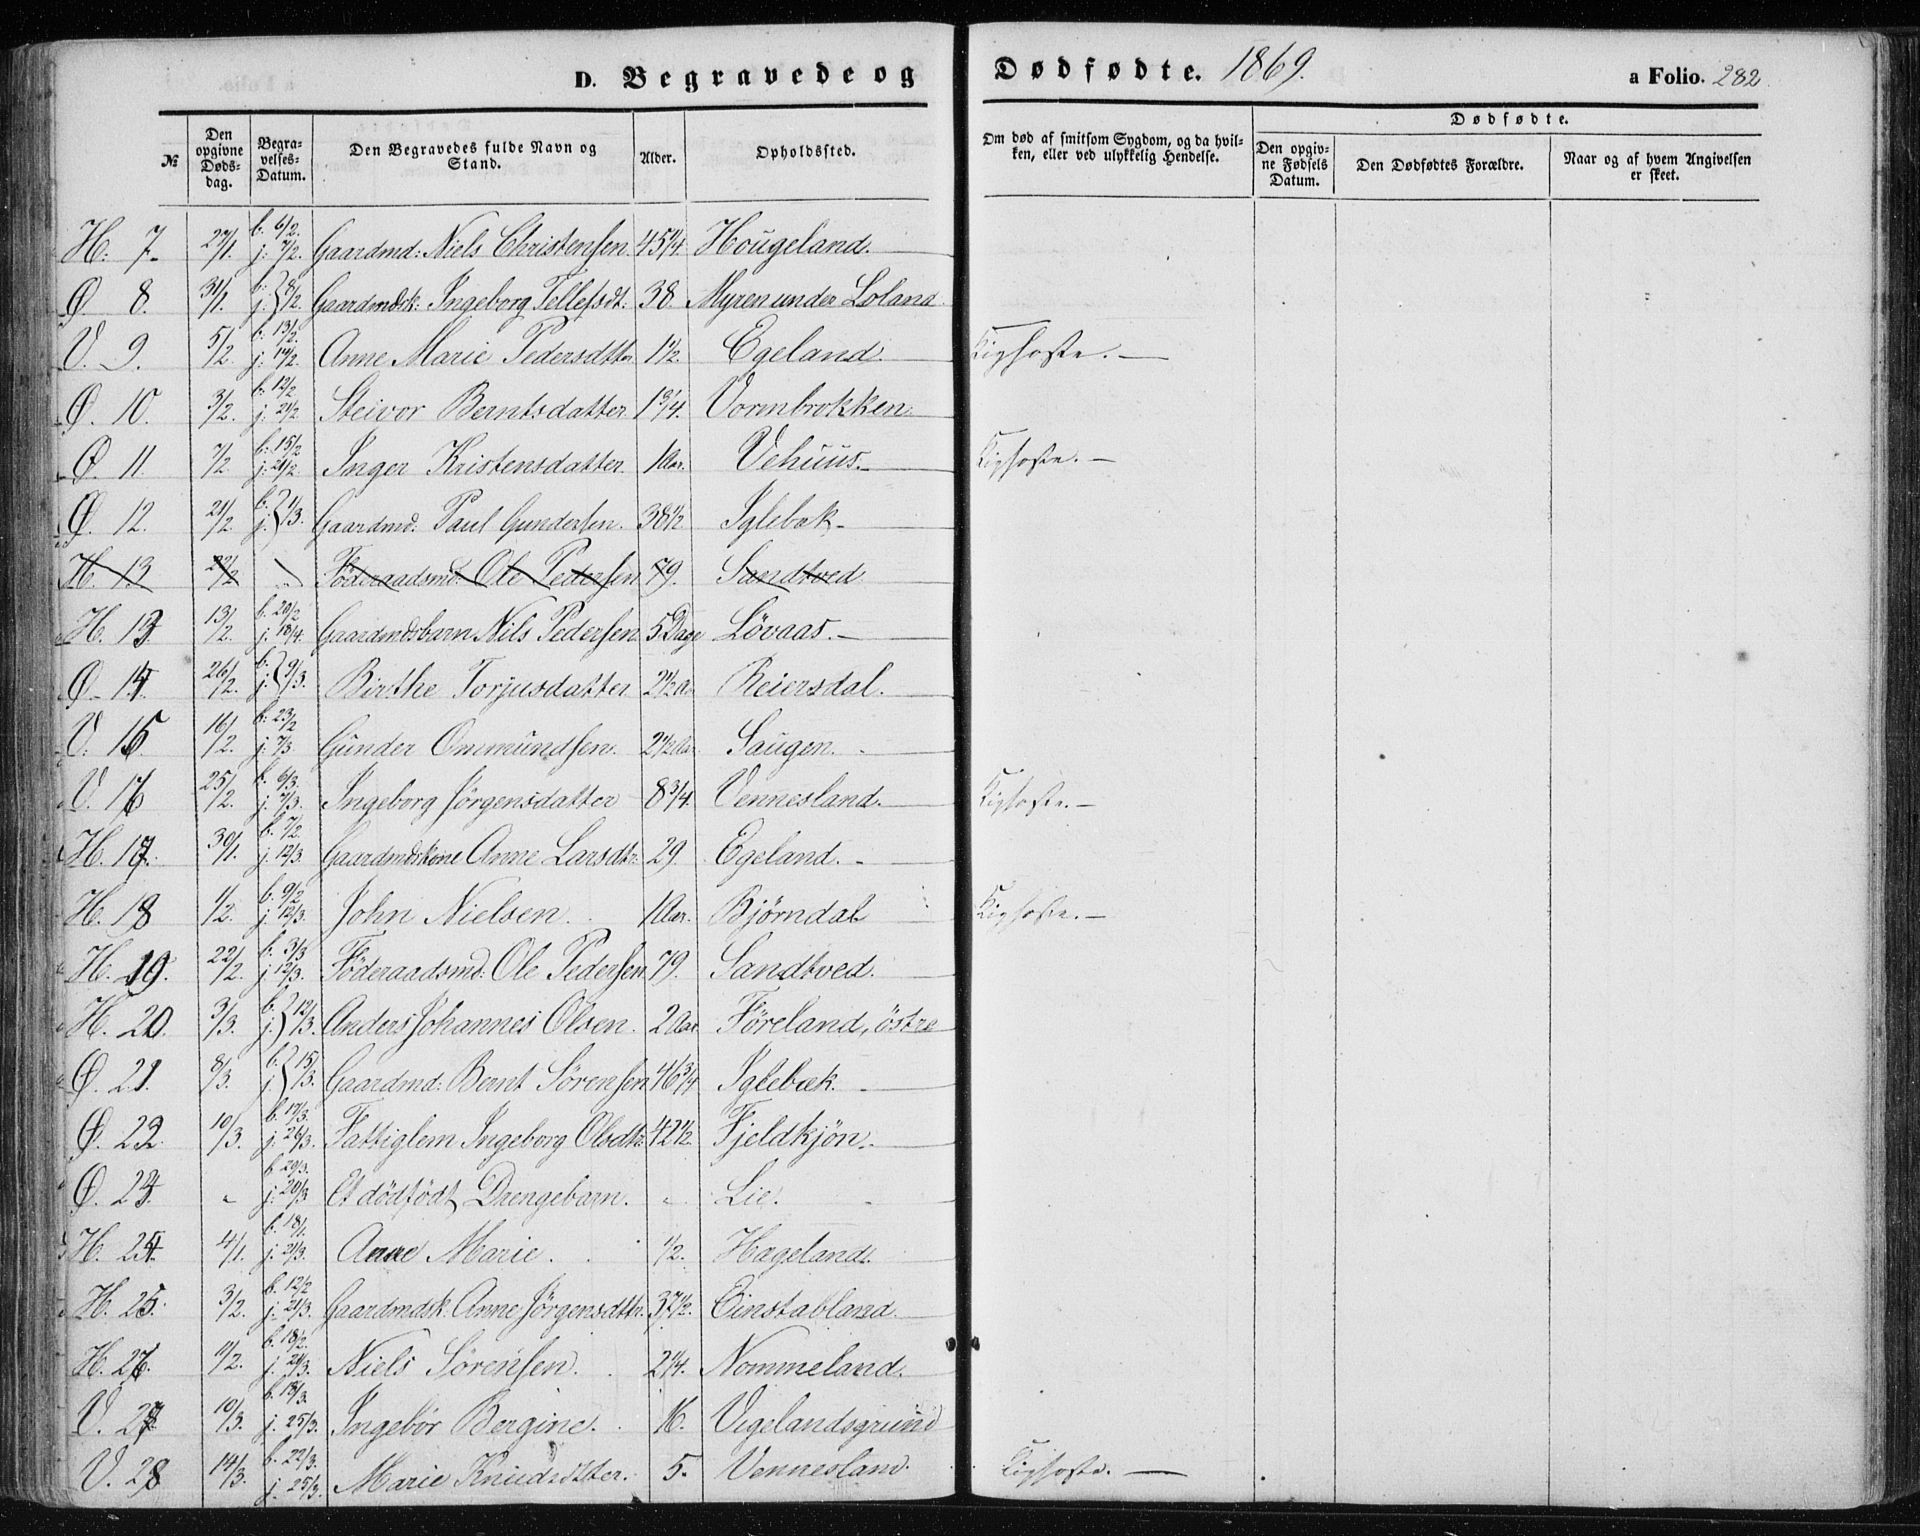 D. Begravede og Dødfødte. 1869. a Folio. 282.
№ Den opgivne Døds-dag. Begra-velses-Datum. Den Begravedes fulde Navn og Stand. Alder. Opholdssted. Om død af smitsom Sygdom, og da hvil-ken, eller ved ulykkelig Hendelse. Dødfødte. Den opgiv-ne Fødsels Datum. Den Dødfødtes Forældre. Naar og af hvem Angivelsen er skeet.
H. 7. 27/1. b. 6/2. j. 7/2. Gaardmd: Niels Christensen. 45 1/4. Hougeland.
Ø. 8. 31/1 b. j. } 8/2. Gaardmdsk: Ingeborg Tellefsdt: 38 Myren under Loland
V. 9. 5/2 b. 13/2. j. 14/2. Anne Marie Pedersdtter 1 1/2. Egeland. Kighoste. —
Ø. 10. 3/2. b. 12/2 j. 21/2. Steivor Berntsdatter 1 3/4. Vormbrokken.
Ø. 11. 7/2. b. 15/2 j. 21/2. Inger Kristensdatter. 1 Aar. Vehuus. Kighoste. —
Ø. 12. 21/2. b. j. } 1/3. Gaardmd. Paul Gundersen. 38 1/2 Iglebæk.
H. 13 22/2 " Föderaadsmd. Ole Pedersen 79. Sandtved
H. 13 13/2. b. 20/2 j. 18/4. Gaardmdsbarn Nils Pedersen 5 Dage Lövaas.
Ø. 14. 26/2. b. j. } 9/3. Birthe Torjusdatter 2 1/2 A. Reiersdal.
V. 15 16/2. b. 23/2 j. 7/3. Gunder Ommundsen. 2 1/2 Aar. Saugen.
V. 16 25/2. b. 6/3. j. 7/3. Ingeborg Jörgensdatter 8 3/4. Vennesland. Kighoste. —
H. 17. 30/1. b. 7/2. j. 12/3. Gaardmdskone Anne Larsdtr. 29. Egeland.
H. 18 1/2. b. 9/2 j. 12/3. John Nielsen. 1 Aar. Björndal Kighoste. —
H. 19. 22/2. b. 3/3 j. 12/3. Föderaadsmd: Ole Pedersen 79. Sandtved.
H. 20. 3/3. b. j. } 12/3. Anders Johannes Olsen. 2 Aar. Föreland, östre
Ø. 21. 8/3. b. j. } 15/3. Gaardmd: Bernt Sörensen 46 3/4 Iglebæk.
Ø. 22. 10/3. b. 17/3. j. 26/3. Fattiglem Ingeborg Olsdtr. 42 1/2. Fjeldkjön.
Ø. 23. " b. 20/3. j. 20/3 Et dödfödt Drengebarn. " Lie.
H. 24. 4/1. b. 18/1. j. 21/3. Anne Marie. 1/2. Hægeland.
H. 25. 3/2. b. 12/2 j. 21/3. Gaardmdsk. Anne Jörgensdtr. 37 1/2. Einstabland.
H. 26. 11/2. b. 18/2. j. 21/3. Niels Sörensen. 2 1/4. Nommeland.
V. 27. 10/3. b. 18/3. j. 25/3. Ingebör Bergine. 16. Vigelandsgrund
V. 28 14/3. b. 22/3. j. 25/3. Marie Knudsdtter. 5. Vennesland. Kighoste. —